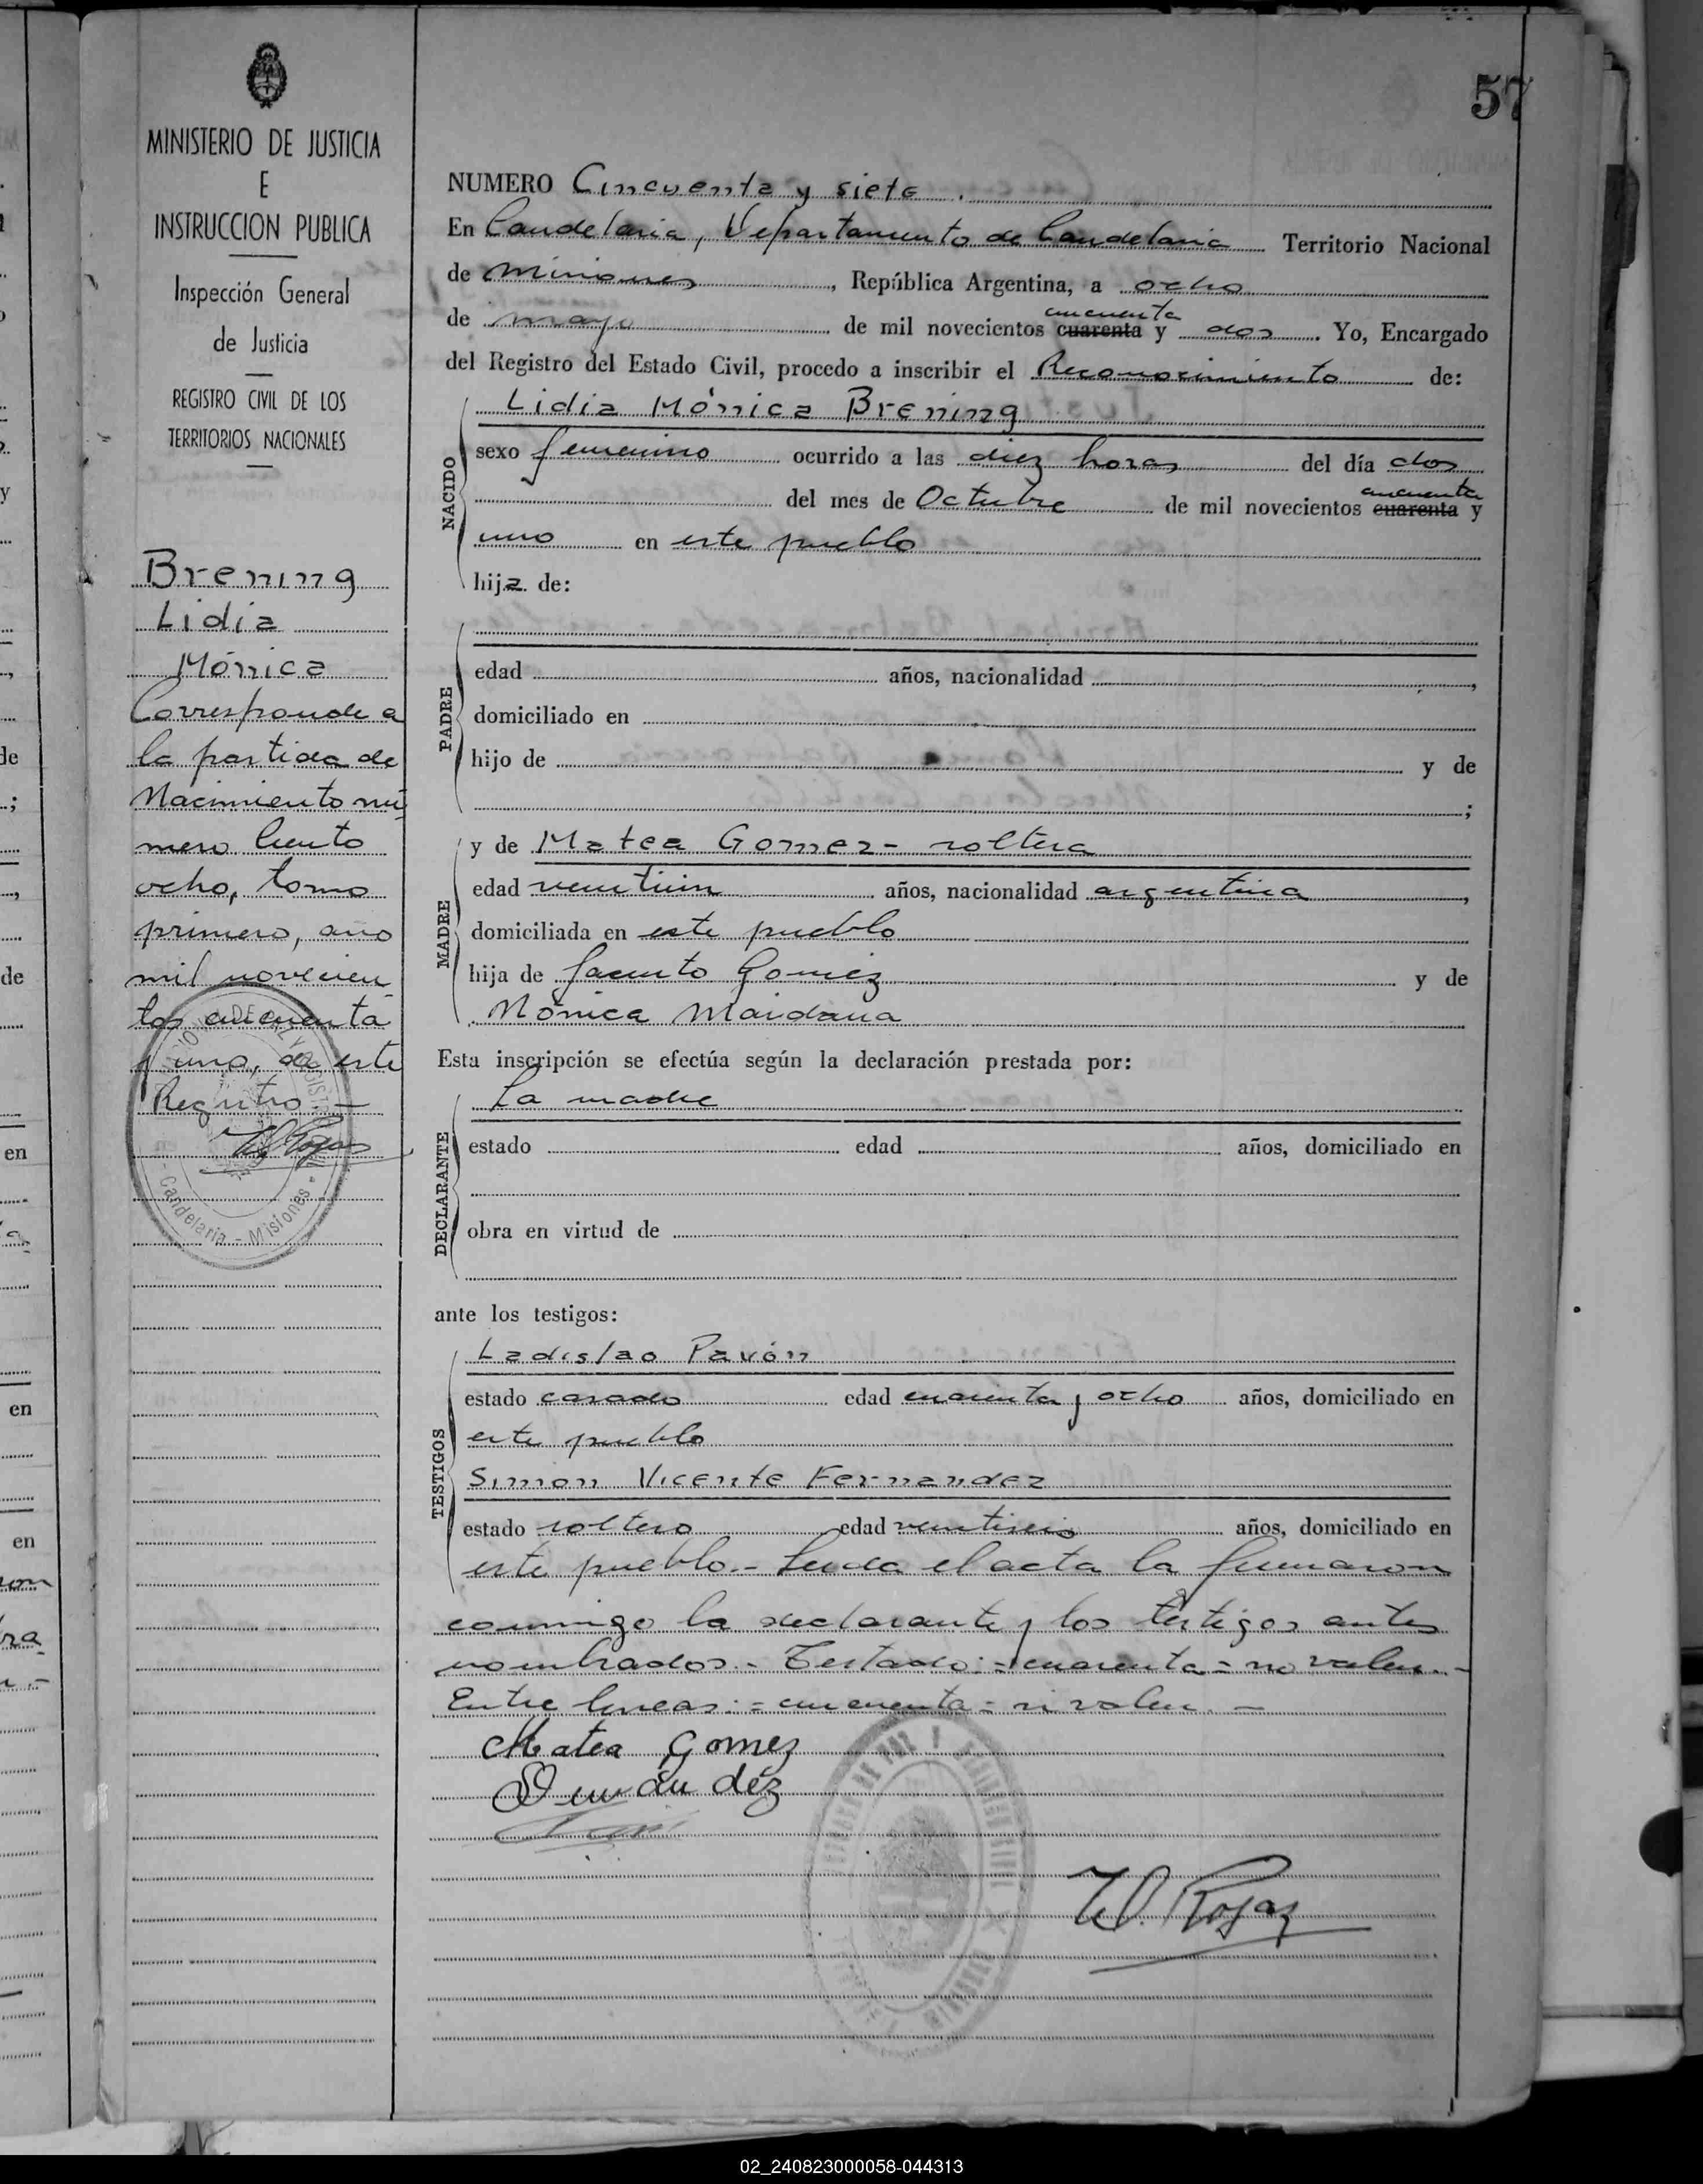 57
MINISTERIO DE JUSTICIA
E
INSTRUCCION PUBLICA
Inspección General
de Justicia
REGISTRO CIVIL DE LOS
TERRITORIOS NACIONALES
Brening
Lidia
Mónica
Corresponde a
la partida de
Nacimiento nú
mero Ciento
ocho, tomo
primero, año
mil novecien
tos cincuenta
y uno, de este
Registro.-
W. Rojas
Candelaria - Misiones
NUMERO Cincuenta y siete.
En Candelaria, Departamento de Candelaria Territorio Nacional
de Misiones, República Argentina, a ocho
cincuenta
de mayo de mil novecientos cuarenta y dos. Yo, Encargado
del Registro del Estado Civil, procedo a inscribir el Reconocimiento de:
NACIDO
Lidia Mónica Brening
sexo femenino ocurrido a las diez horas del día dos
cincuenta
del mes de Octubre de mil novecientos cuarenta y
uno en este pueblo
hija de:
PADRE
edad años, nacionalidad ,
domiciliado en
hijo de y de
;
MADRE
y de Matea Gomez- soltera
edad veintiun años, nacionalidad argentina,
domiciliada en este pueblo
hija de Jacinto Gomez y de
Mónica Maidana
Esta inscripción se efectúa según la declaración prestada por:
DECLARANTE
La madre
estado edad años, domiciliado en
obra en virtud de
ante los testigos:
TESTIGOS
Ladislao Pavón
estado casado edad cuarenta y ocho años, domiciliado en
este pueblo
Simon Vicente Fernandez
estado soltero edad veintiseis años, domiciliado en
este pueblo.- Leida el acta la firmaron
conmigo la declarante y los testigos antes
nombrados.- Testado:=cuarenta=no valen.-
Entre lineas:=cincuenta=si valen.-
Matea Gomez
W. Rojas
02_240823000058-044313